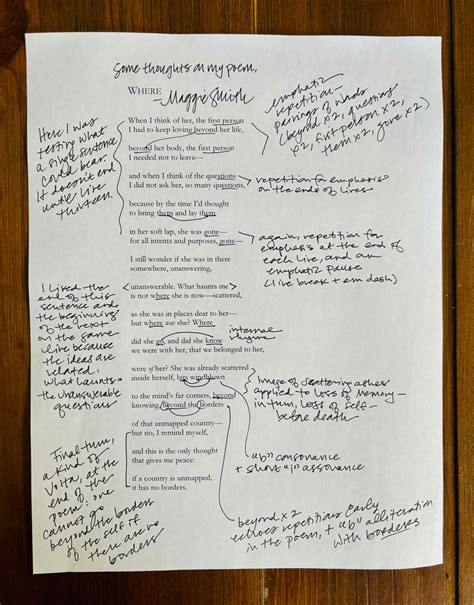 Some thoughts on my poem,
WHERE
—Maggie Smith
When I think of her, the first person
I had to keep loving beyond her life,
beyond her body, the first person
I needed not to leave—
and when I think of the questions
I did not ask her, so many questions,
because by the time I'd thought
to bring them and lay them
in her soft lap, she was gone—
for all intents and purposes, gone—
I still wonder if she was in there
somewhere, unanswering,
unanswerable. What haunts me
is not where she is now—scattered,
as she was in places dear to her—
but where was she? Where
did she go, and did she know
we were with her, that we belonged to her,
were of her? She was already scattered
inside herself, bits windblown
to the mind's far corners, beyond
knowing, beyond the borders
of that unmapped country—
but no, I remind myself,
and this is the only thought
that gives me peace:
if a country is unmapped,
it has no borders.
Here I was
testing what
a single sentence
could bear.
It doesn't end
until line
thirteen.
emphatic
repetition—
pairings of words
(beyond x2, questions
x2, first person x2,
them x2, gone x2)
repetition for emphasis
on the ends of lines
again, repetition for
emphasis at the end of
each line, and an
emphatic pause
(line break + em dash)
I liked the
end of this
sentence and
the beginning
of the next
on the same
line because
the ideas are
related:
what haunts =
the unanswerable
questions
internal
rhyme
Image of scattering ashes
applied to loss of memory—
in turn, loss of self
before death
"b" consonance
+ short "i" assonance
Final turn,
a kind of
volta, at the
end of the
poem: one
cannot go
beyond the borders
of the self if
there are no
borders
beyond x2
echoes repetitions early
in the poem, + "b" alliteration
with borders